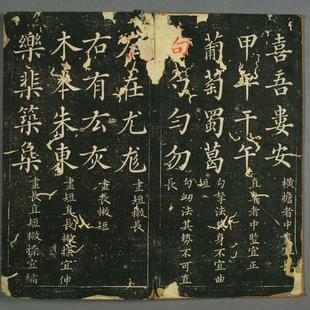 喜吾婁安 橫擔者中畫
甲平干午 直者中竪宜正
葡萄蜀葛 勾拏法其身不宜曲短
句勺勻勿 勾法其勢不可直長
左在尤尨 畫短撇長
右有厷灰 畫長撇短
木本朱東 畫短直長撇捺宜伸
樂棐築集 畫長直短撇捺宜縮